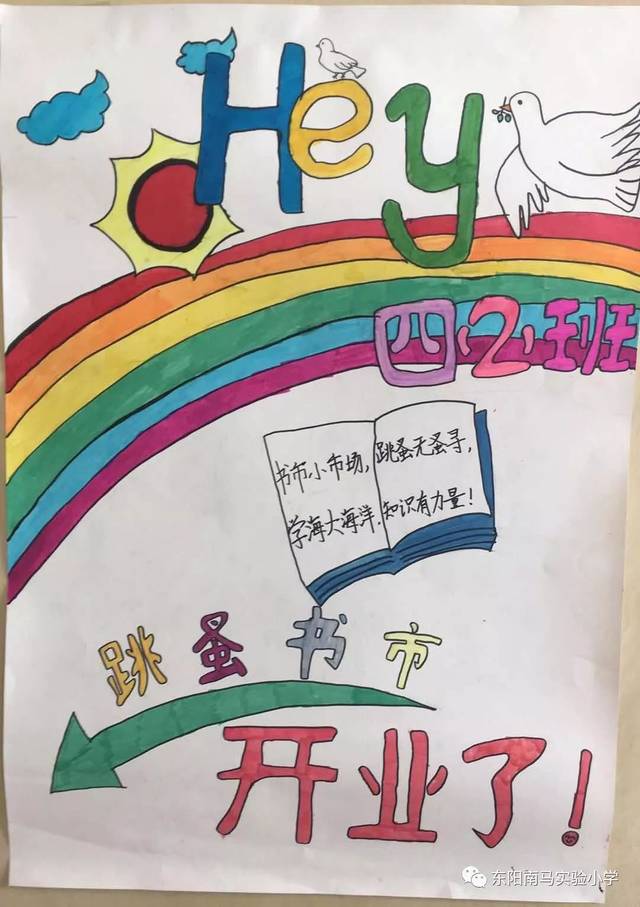 Hey
四(2)班
书市小市场,
学海大海洋.
跳蚤无蚤寻,
知识有力量!
跳蚤书市
开业了!
东阳南马实验小学